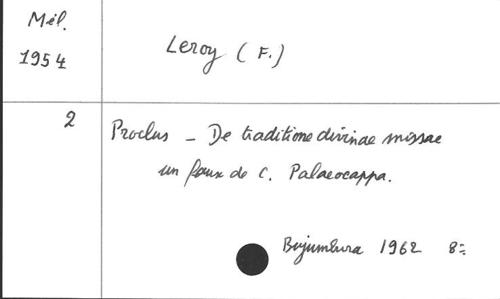 Mél.
1954
Leroy (F.)
2
Proclus - De traditione divinae missae
un faux de C. Palaeocappa.
Bujumbura 1962 8=